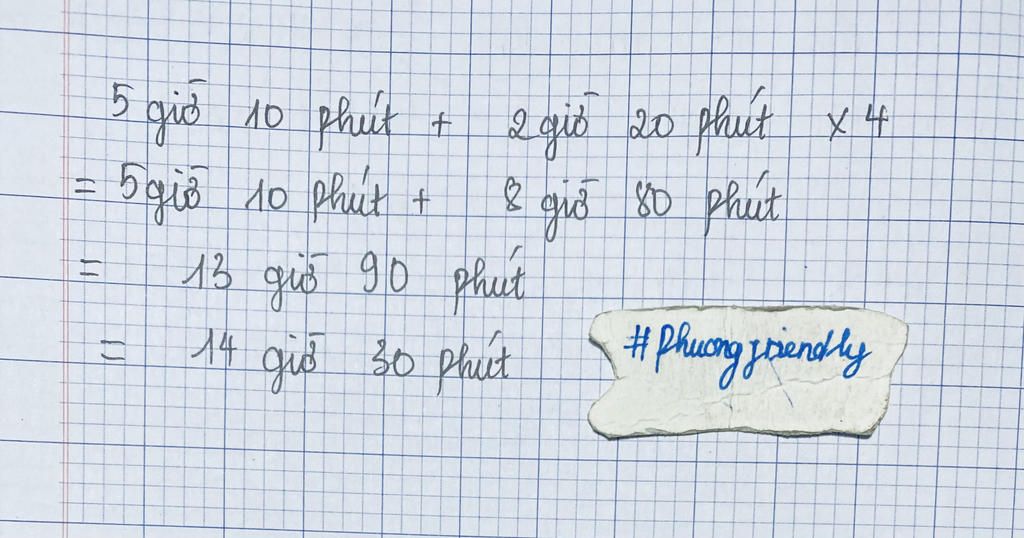 5 giờ 10 phút + 2 giờ 20 phút x 4
= 5 giờ 10 phút + 8 giờ 80 phút
= 13 giờ 90 phút
= 14 giờ 30 phút
# phuongfriendly